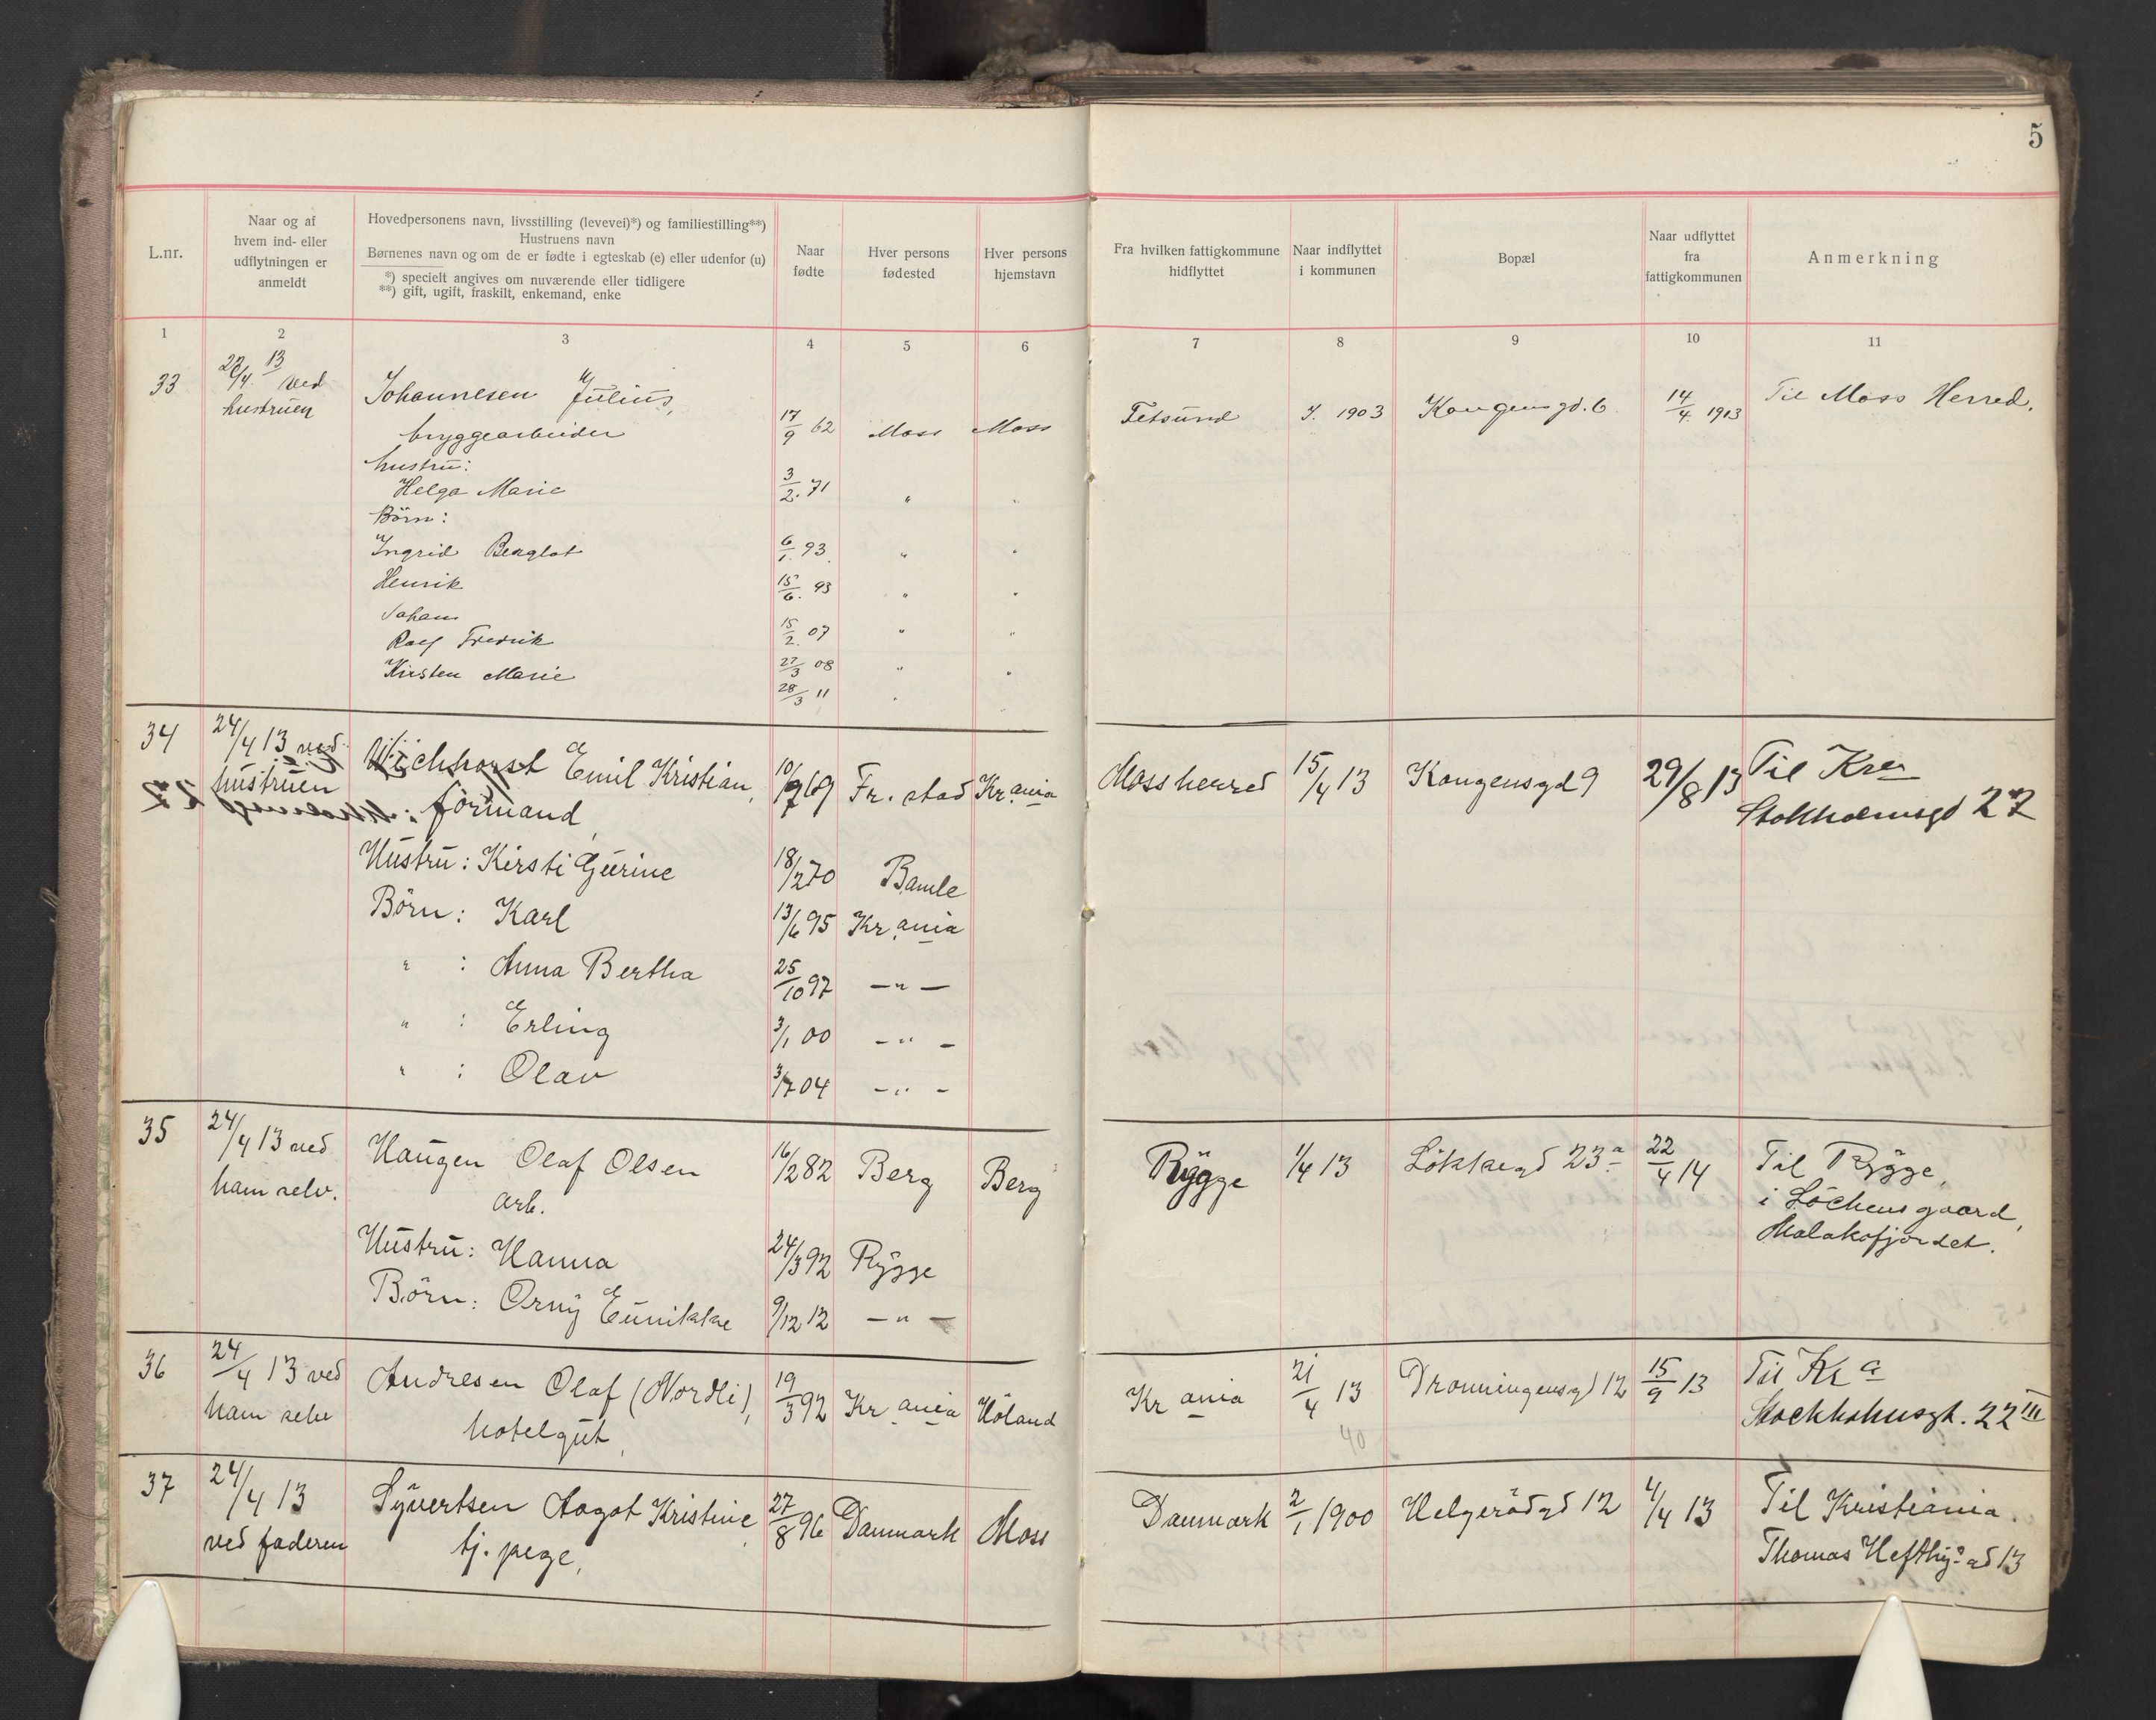 5
L.nr.
Naar og af
hvem ind- eller
udflytningen er
anmeldt
Hovedpersonens navn, livsstilling (levevei)*) og familiestilling**)
Hustruens navn
Børnenes navn og om de er fødte i egteskab (e) eller udenfor (u)
*) specielt angives om nuværende eller tidligere
**) gift, ugift, fraskilt, enkemand, enke
Naar
fødte
Hver persons
fødested
Hver persons
hjemstavn
Fra hvilken fattigkommune
hidflyttet
Naar indflyttet
i kommunen
Bopæl
Naar udflyttet
fra
fattigkommunen
Anmerkning
1 2 3 4 5 6 7 8 9 10 11
33 22/4 13 ved Johannesen Julius, Til Moss Herred.
hustruen
bryggearbeider 17/9 62 Moss Moss Tetsund 1903 Kongensgd. 6 14/4 1913
hustru:
Helga Marie 3/2 71 " "
Börn:
Ingrid Bergliot 6/1 93 " "
Henrik 15/6 93 " "
Johan 15/2 07 " "
Rolf Fredrik 27/3 08 " "
Kirsten Marie 28/3 11 "
34 24/4 13 ved Wichhorst Emil Kristian, 10/7 69 Fr.stad Kr.ania Moss herred 15/4 13 Kongensgd 9 29/8 13 Til Kra
hustruen formand, Stokholmsgd 22
Hustru: Kirsti Gurine 18/2 70 Bamle
Börn: Karl 13/6 95 Kr.ania
" : Anna Bertha 25/10 97 — " —
" : Erling 3/1 00 — " —
" : Olav 3/7 04 — " —
35 24/4 13 ved Haugen Olaf Olsen 16/2 82 Berg Berg Rygge 1/4 13 Lökkegd 23a 22/4 14 Til Rygge,
ham selv. arb. i Löchens gaard,
Malakofjordet.
Hustru: Hanna 24/3 92 Rygge
Börn: Orny Eunikke 9/12 12 — " —
36 24/4 13 ved Andresen Olaf (Nordli), 19/3 92 Kr.ania Höland Kr.ania 21/4 13 Dronningensgd 12 15/9 13 Til Kra
ham selv hotelgut, 40 22 III
37 24/4 13 Syvertsen Aagot Kristine, 27/8 96 Danmark Moss Danmark 2/1 1900 Helgerödgd 12 4/4 13 Til Kristiania.
ved faderen tj. pege, Thomas Heftys gd 13